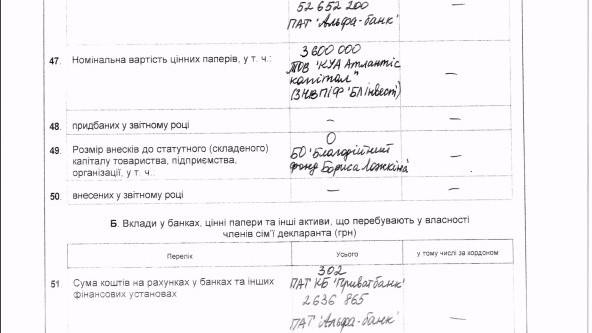 52 652 200
ПАТ 'Альфа-банк'
—
47. Номінальна вартість цінних паперів, у т. ч.:
3 600 000
ТОВ 'КУА Атлантіс
капітал"
(ЗНВПІФ 'БЛ інвест')
—
48. придбаних у звітному році
—
—
49. Розмір внесків до статутного (складеного)
капіталу товариства, підприємства,
організації, у т. ч.:
0
БО 'Благодійний
фонд Бориса Ложкіна'
—
50. внесених у звітному році
—
—
Б. Вклади у банках, цінні папери та інші активи, що перебувають у власності
членів сім'ї декларанта (грн)
Перелік
Усього
у тому числі за кордоном
51. Сума коштів на рахунках у банках та інших
фінансових установах
302
ПАТ КБ 'Приватбанк'
2636 865
ПАТ 'Альфа-банк'
—
—